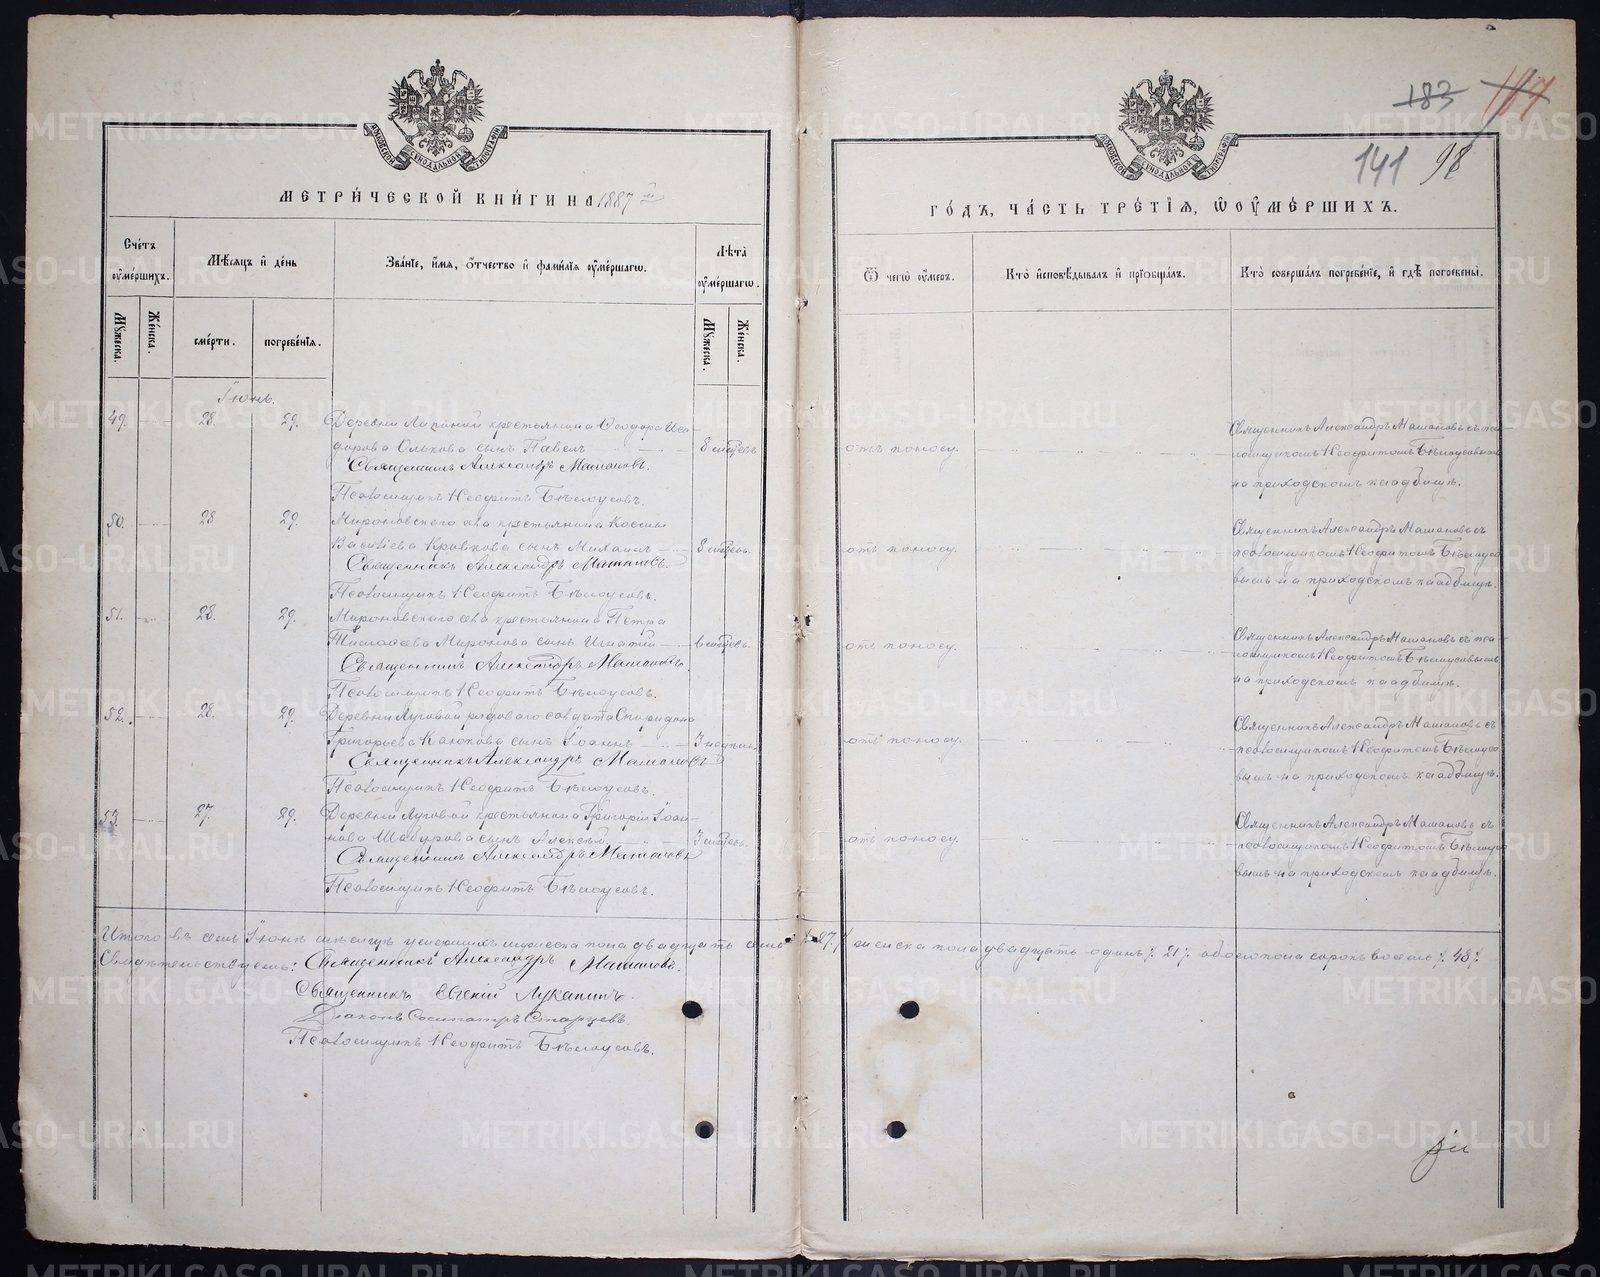 МЕТРИЧЕСКОЙ КНИГИ НА 1887 й
Счетъ умершихъ.
Мѣсяцъ и день
Званіе, имя, отчество и фамилія умершагѡ.
Лѣта умершагѡ.
Мужеска.
Женска.
смерти.
погребенія.
Мужеска.
Женска.
Іюнь.
49. 28. 29. Деревни Липиной крестьянина Ѳеодора Иси-
дорова Олькова сынъ Павелъ 8 мѣсяцевъ
Священникъ Александръ Машановъ.
Псаломщикъ Неофитъ Бѣлоусовъ.
50. 28 29. Мироновскаго села крестьянина Космы
Васильева Кривкова сынъ Михаилъ 8 мѣсяцевъ.
Священникъ Александръ Машановъ.
Псаломщикъ Неофитъ Бѣлоусовъ.
51. 28. 29. Мироновскаго села крестьянина Петра
Миронова сынъ Игнатій 6 мѣсяцевъ.
Священникъ Александръ Машановъ.
Псаломщикъ Неофитъ Бѣлоусовъ.
52. 28. 29. Деревни Луговой рядоваго солдата Спиридона
Григорьева Каюкова сынъ Іоаннъ 3 недѣль.
Священникъ Александръ Машановъ
Псаломщикъ Неофитъ Бѣлоусовъ.
53. 27. 29. Деревни Луговой крестьянина Григорія Іоан-
нова Шабурова сынъ Алексѣй 3 мѣсяцевъ.
Священникъ Александръ Машановъ
Псаломщикъ Неофитъ Бѣлоусовъ.
Итого въ семъ Іюнѣ мѣсяцѣ умершихъ мужеска пола двадцать семь /:27./
Свидѣтельствуемъ: Священникъ Александръ Машановъ.
Священникъ Евгеній Луканинъ.
Діаконъ Сосипатръ Старцевъ
Псаломщикъ Неофитъ Бѣлоусовъ.
183
187
141 98
ГОДЪ, ЧАСТЬ ТРЕТІЯ, Ѡ УМЕРШИХЪ.
Ѿ чегѡ умеръ.
Кто исповѣдывалъ и пріобщалъ.
Кто совершалъ погребеніе, и гдѣ погребены.
отъ поносу. Священникъ Александръ Машановъ съ пса-
ломщикомъ Неофитомъ Бѣлоусовымъ
на приходскомъ кладбищѣ.
отъ поносу. Священникъ Александръ Машановъ съ
псаломщикомъ Неофитомъ Бѣлоусо
вымъ на приходскомъ кладбищѣ.
отъ поносу. Священникъ Александръ Машановъ съ пса-
ломщикомъ Неофитомъ Бѣлоусовымъ
на приходскомъ кладбищѣ.
отъ поносу. Священникъ Александръ Машановъ съ
псаломщикомъ Неофитомъ Бѣлоусо
вымъ на приходскомъ кладбищѣ.
отъ поносу. Священникъ Александръ Машановъ съ
псаломщикомъ Неофитомъ Бѣлоусо
вымъ на приходскомъ кладбищѣ.
женска пола двадцать одинъ /:21/: обоего пола сорокъ восемь /:48/: